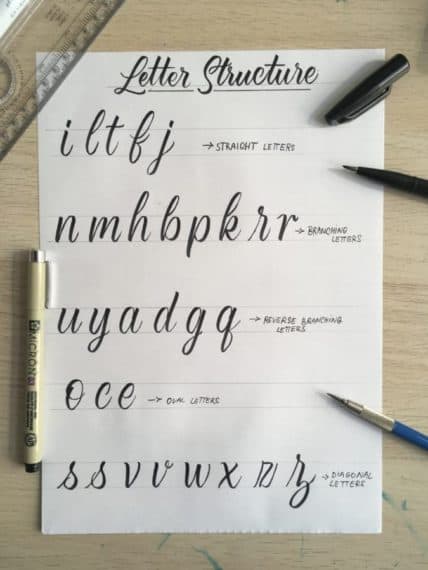 Letter Structure
i l t f j → STRAIGHT LETTERS
n m h b p k r r → BRANCHING
LETTERS
u y a d g q → REVERSE BRANCHING
LETTERS
o c e → OVAL LETTERS
s s v v w x z z → DIAGONAL
LETTERS
MICRON